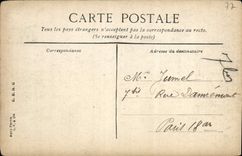 77
CARTE POSTALE
Tous les pays étrangers n'acceptent pas la correspondance au recto.
(Se renseigner à la poste)
Correspondance
Adresse du destinataire
Jumel
Rue Damrémont
Paris 18